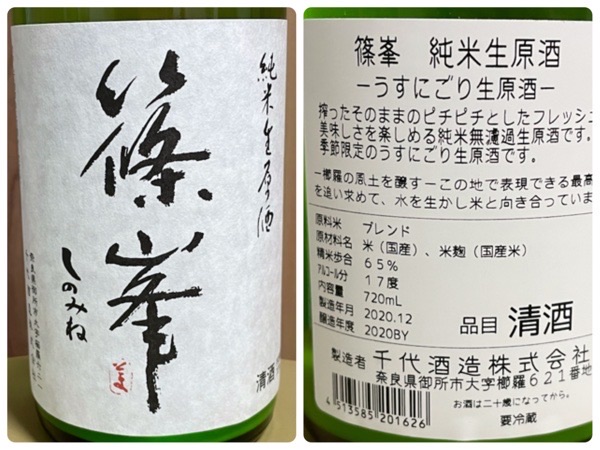 純米生原酒
篠峯
しのみね
清酒
篠峯 純米生原酒
―うすにごり生原酒―
搾ったそのままのピチピチとしたフレッシュ
美味しさを楽しめる純米無濾過生原酒です。
季節限定のうすにごり生原酒です。
―櫛羅の風土を醸す―この地で表現できる最高
を追い求めて、水を生かし米と向き合っていま
原料米 ブレンド
原材料名 米(国産)、米麹(国産米)
精米歩合 65%
アルコール分 17度
内容量 720mL
製造年月 2020.12
醸造年度 2020BY
品目 清酒
製造者 千代酒造株式会社
奈良県御所市大字櫛羅621番地
4513585201626
お酒は二十歳になってから。
要冷蔵